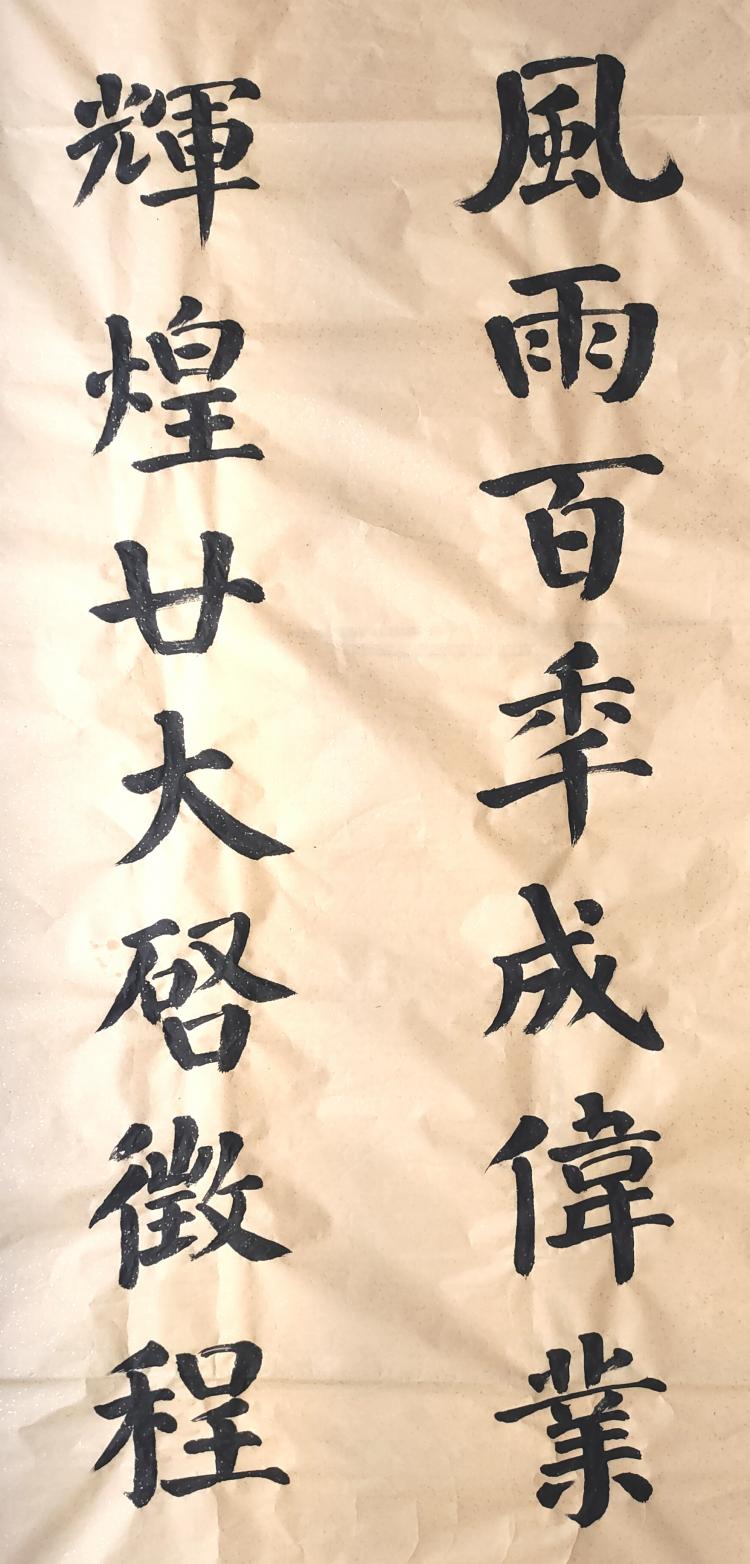 風雨百季成偉業
輝煌廿大啓徵程